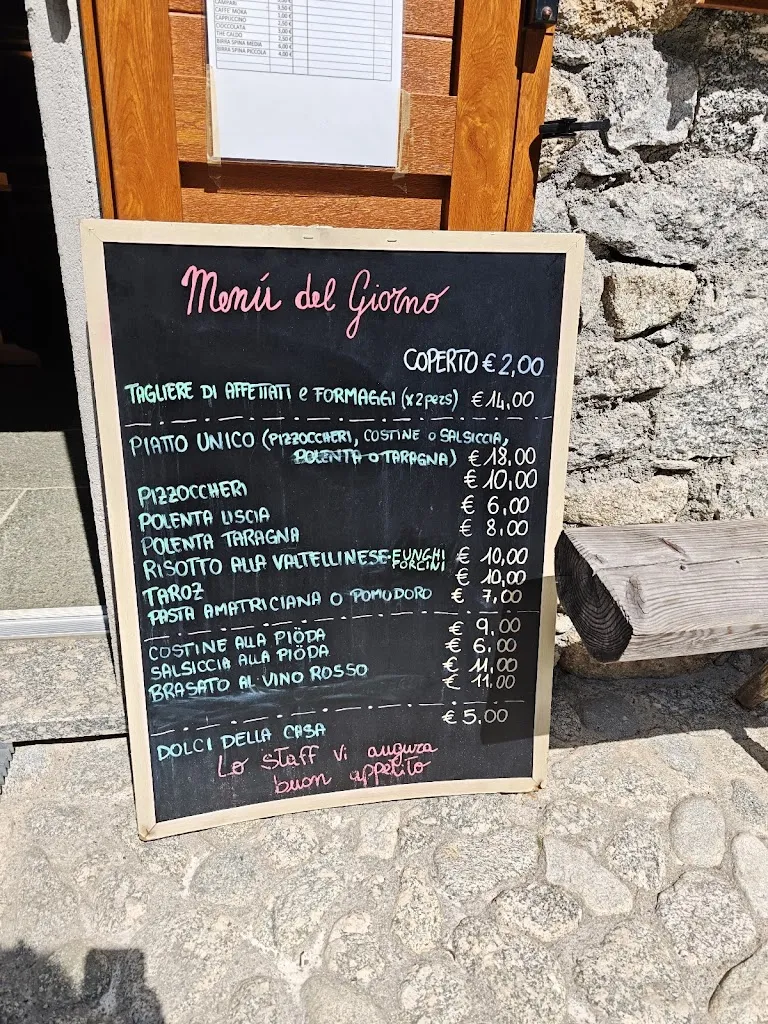 CAMPARI
CAFFE' MOKA
CAPPUCCINO
CIOCCOLATA
THE CALDO
BIRRA SPINA MEDIA 6,00 €
BIRRA SPINA PICCOLA 4,00 €
Menú del Giorno
COPERTO € 2,00
TAGLIERE DI AFFETTATI e FORMAGGI (x2pers) € 14,00
PIATTO UNICO (PIZZOCCHERI, COSTINE O SALSICCIA,
POLENTA O TARAGNA) € 18,00
PIZZOCCHERI € 10,00
POLENTA LISCIA € 6,00
POLENTA TARAGNA € 8,00
RISOTTO ALLA VALTELLINESE-FUNGHI PORCINI € 10,00
TAROZ € 10,00
PASTA AMATRICIANA O POMODORO € 7,00
COSTINE ALLA PIÖDA € 9,00
SALSICCIA ALLA PIÖDA € 6,00
BRASATO AL VINO ROSSO € 11,00
€ 11,00
DOLCI DELLA CASA € 5,00
Lo staff vi augura
buon appetito